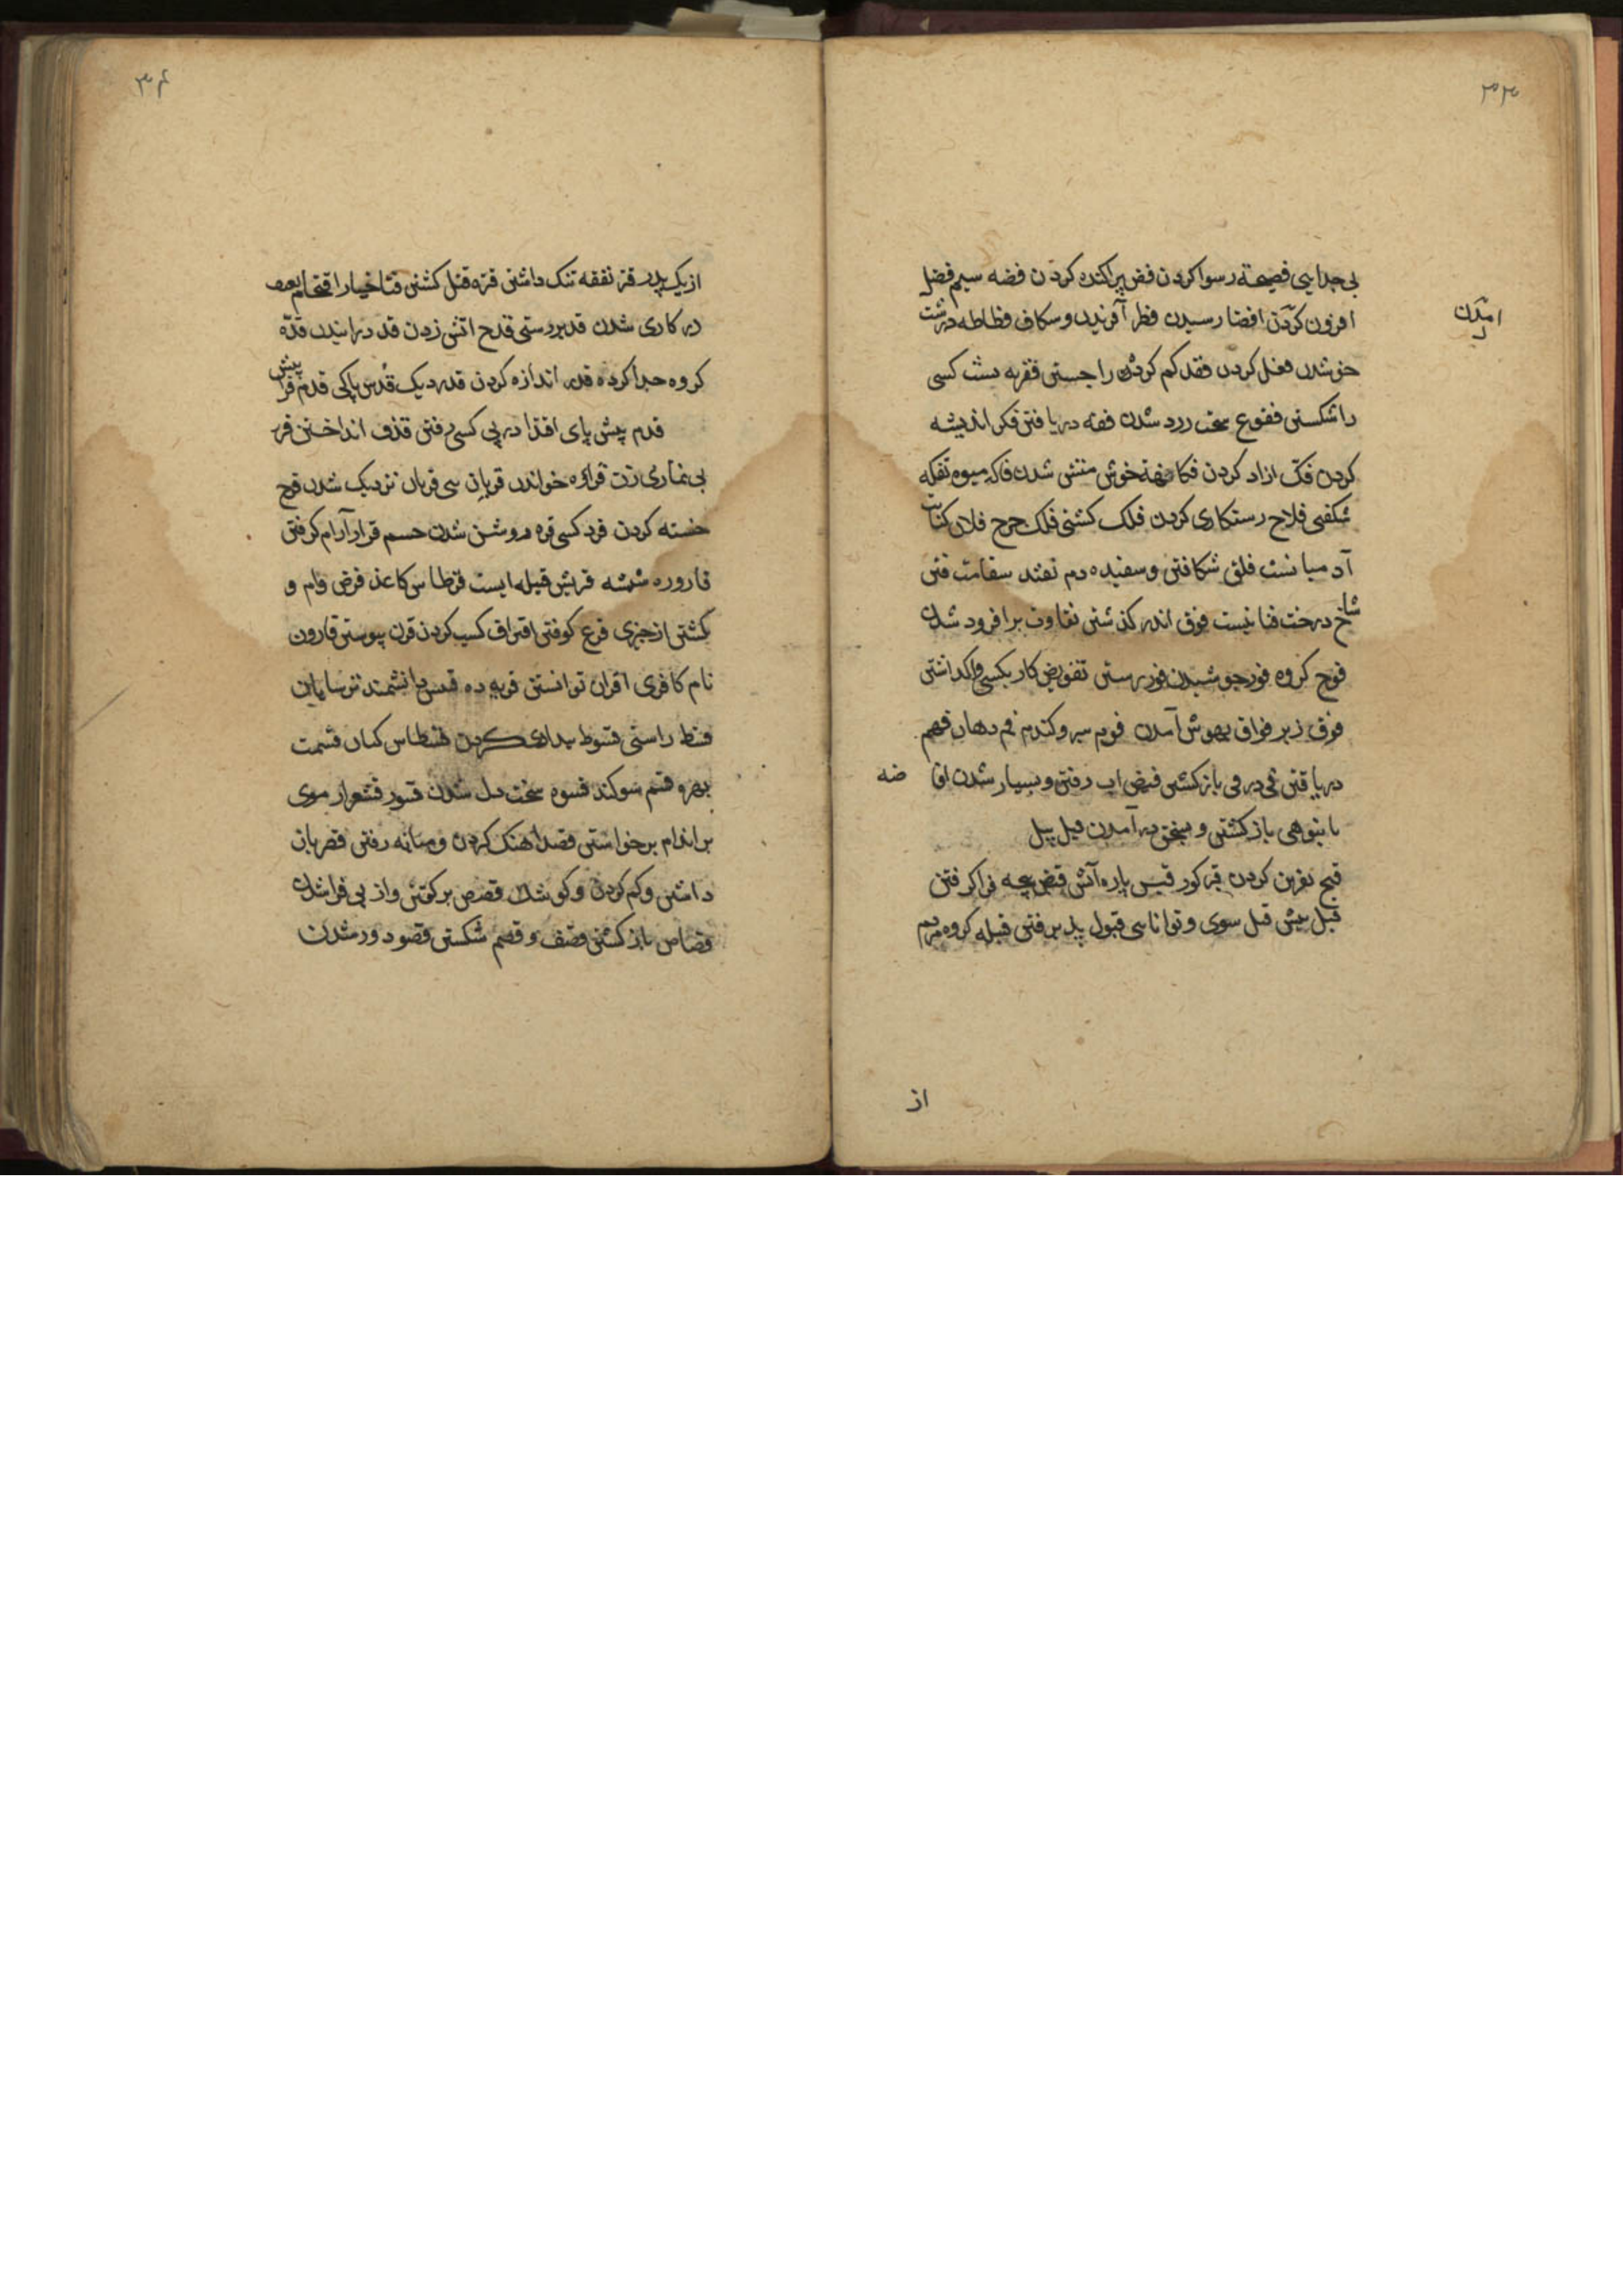 ۳۳
بی جدایی فضیحة رسوا کردن فض پراکنده کردن فضه سیم فضل
افزون کردن افضا رسیدن فطر آفریدن و شکاف فظاظه درشت
خو شدن فعل کردن فقد کم کردن را جستن فقره پشت کسی
را شکستن فقوع سخت زرد شدن فقه دریافتن فکر اندیشه
کردن فک ازاد کردن فکاهة خوش منش شدن فاکه میوه تفکه
شکفتی فلاح رستکاری کردن فلک کشتی فلک چرخ فلان کنایت
آدمیانست فلق شکافتن و سفیده دم تفنید سفاهت فنن
شاخ درخت فنا نیست فوق اندر کذشتن تفاوت برافرود شدن
فوج کروه فور جوشیدن فوز رستن تفویض کار بکسی واکذاشتن
فوق زبر فواق بهوش آمدن فوم سیر و کندم فم دهان فهم
دریافتن فی در فی باز کشتن فیض اب رفتن و بسیار شدن افا
ضه
بانبوهی باز کشتن و بسخن درآمدن فیل پیل
امدن
قبح نفرین کردن قبر کور قبس پاره آتش قبض پنجه فراکرفتن
قبل پیش قبل سوی و توانایی قبول پذیرفتن قبیله کروه مردم
از
۳۴
از یک پدر قتر نفقه تنک داشتن قتره قتل کشتن قثا خیار اقتحام
در کاری شدن قد بر درستی قدح اتش زدن قد درانیدن قدة
کروه جدا کرده قدر اندازه کردن قدر دیک قدس پاکی قدم فرا پیش
قدم پیش پای اقتدا در پی کسی رفتن قذف انداختن قر
بی نمازی زن قراءه خواندن قربان قربان نزدیک شدن قرح
خسته کردن قرد کپی قره روشن شدن چشم قرار آرام کرفتن
قاروره شیشه قریش قبیله ایست قرطاس کاغذ قرض وام و
بکشتن از چیزی قرع کوفتن اقتراف کسب کردن قرن پیوستن قارون
نام کافری اقران توانستن قریه ده قسیس دانشمند ترسایان
قسط راستی قسوط بیدادی کردن قسطاس کپان قسمت
بهره قسم سوکند قسوه سخت دل شدن قسور قشعرار موی
بر اندام برخواستن قصد آهنک کردن و میانه رفتن قصر باز
داشتن و کم کردن و کوشک قصص برکفتن و از پی فراشدن
قصاص باز کشتن قصف و قصم شکستن قصو دور شدن